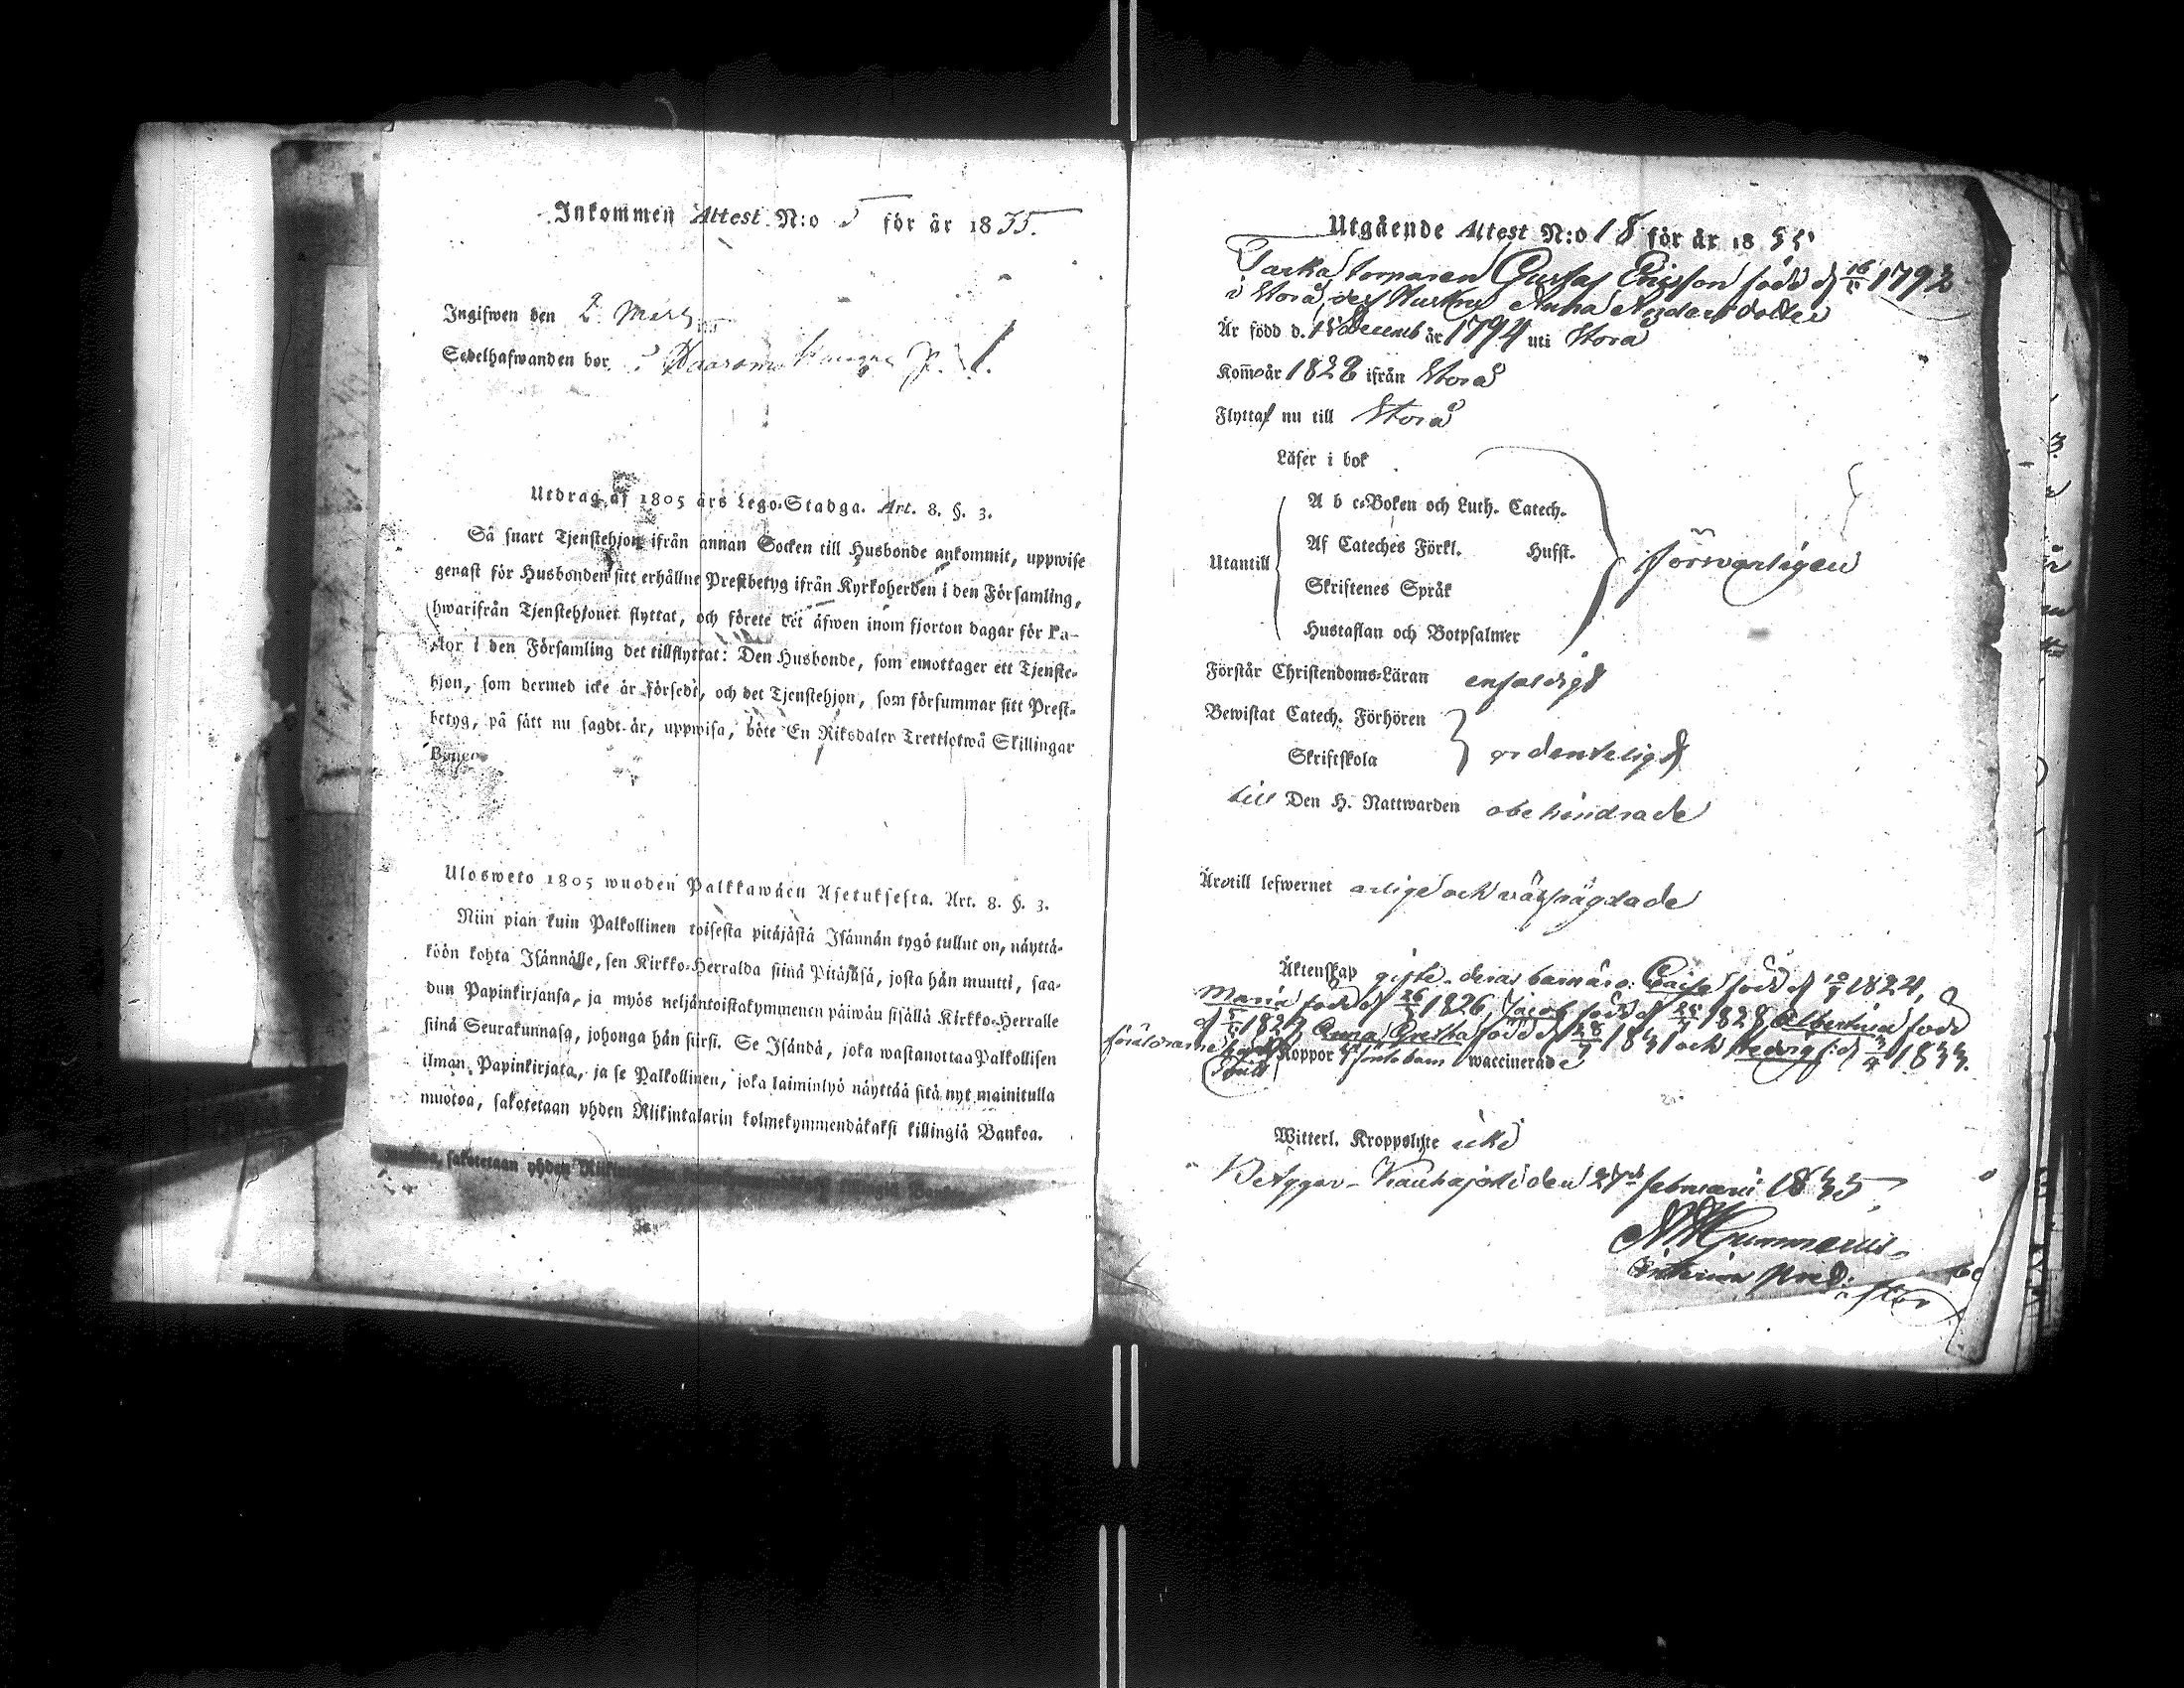 Inkommen Attest N:o 5 för år 1835.
Ingifwen den 2 Mars
Sedelhafwanden bor i
Utdrag af 1805 års Lego-Stadga. Art. 8. §. 3.
Så snart Tjenstehjon ifrån annan Socken till Husbonde ankommit, uppwise
genast för Husbonden sitt erhållne Prestbetyg ifrån Kyrkoherden i den Församling,
hwarifrån Tjenstehjonet flyttat, och förete det äfwen inom fjorton dagar för Pa-
stor i den Församling det tillflyttat: Den Husbonde, som emottager ett Tjenste-
hjon, som dermed icke är försedt, och det Tjenstehjon, som försummar sitt Prest-
betyg, på sätt nu sagdt är, uppwisa, böte En Riksdaler Trettiotwå Skillingar
Banco
Ulosweto 1805 wuoden Palkkawäen Asetuksesta. Art. 8. §. 3.
Niin pian kuin Palkollinen toisesta pitäjästä Isännän tygö tullut on, näyttä-
köön kohta Isännälle, sen Kirkko-Herralda siinä Pitäjäsä, josta hän muutti, saa-
dun Papinkirjansa, ja myös neljäntoistakymmenen päiwän sisällä Kirkko-Herralle
siinä Seurakunnasa, johonga hän siirsi. Se Isändä, joka wastanottaa Palkollisen
ilman Papinkirjata, ja se Palkollinen, joka laiminlyö näyttää sitä nyt mainitulla
muotoa, sakotetaan yhden Riikintalarin kolmekymmendäkaksi killingiä Bankoa.
muotoa, sakotetaan yhden
Utgående Attest N:o 18 för år 1835
Gustaf Ersson född d 16/11 1792
i Storå, dess Hustru Anna Andersdotter
Är född d. 18 Decemb år 1794 uti Storå
Kom år 1828 ifrån Storå
Flyttar nu till Storå
Läser i bok
A b c-Boken och Luth. Catech.
Utantill Af Cateches Förkl. Husst. försvarligen
Skriftenes Språk
Hustaflan och Botpsalmer
Förstår Christendoms-Läran enfaldigt
Bewistat Catech. Förhören
Skriftskola ordenteligt
till Den H. Nattwarden obehindrade
Äro till lefwernet ärlige och välfrägdade
Äktenskap gifte. deras barn äro: Caisa född d 10/9 1824,
Maria född d 26/5 1826, Jacob född d 28/7 1828, Albertina född
d 1829, Anna Gretha född d 28/9 1831 och Hedvig f: d 3/4 1833.
föräldrarne haft Koppor barn waccinerade
Witterl. Kroppslyte icke
Betygar Kauhajoki den 27de februarii 1835
Gummerus